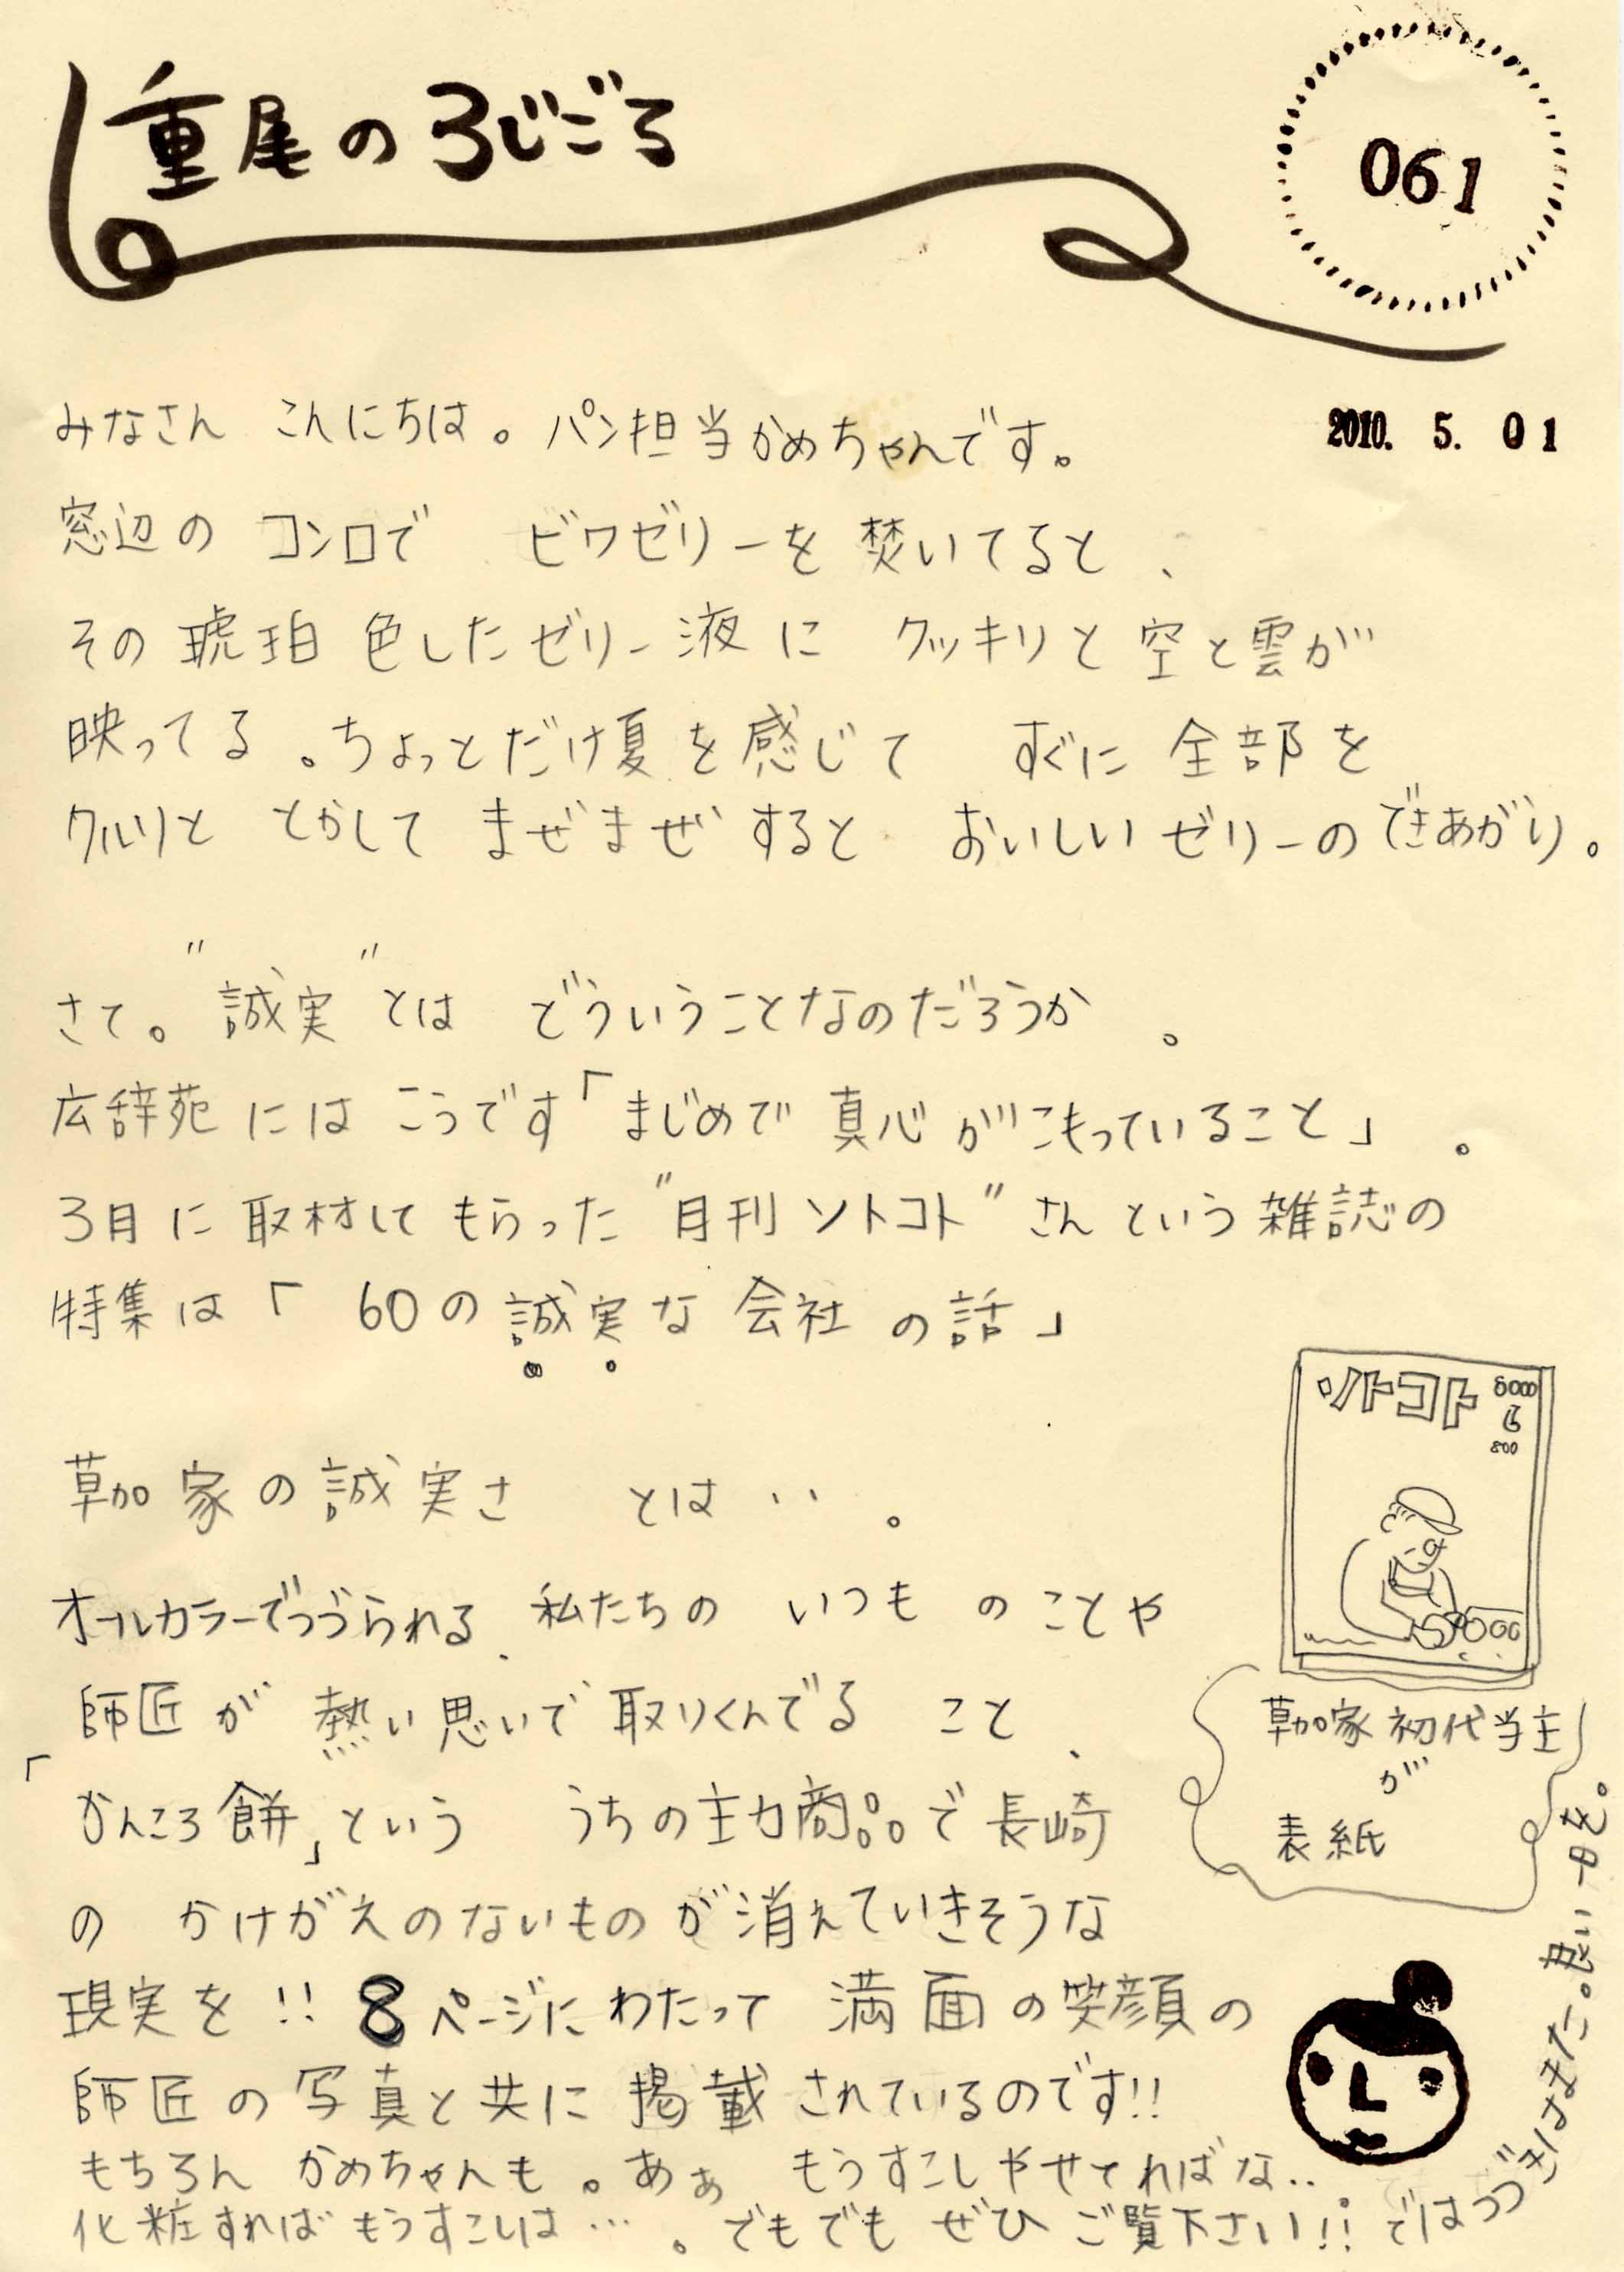 重尾のろじごろ
061
2010. 5. 01
みなさん こんにちは。パン担当かめちゃんです。
窓辺の コンロで ビワゼリーを 焚いてると、
その琥珀色したゼリー液に クッキリと空と雲が
映ってる。ちょっとだけ夏を感じて すぐに全部を
クルリと とかして まぜまぜすると おいしいゼリーのできあがり。
さて。"誠実"とは どういうことなのだろうか。
広辞苑には こうです「まじめで真心がこもっていること」。
3月に取材してもらった"月刊ソトコト"さんという雑誌の
特集は「60の誠実な会社の話」
草加家の誠実さ とは‥。
オールカラーでつづられる、私たちの いつものことや
師匠が熱い思いで取りくんでる こと、
「かんころ餅」という うちの主力商品で長崎
の かけがえのないものが消えていきそうな
現実を!! 8ページにわたって 満面の笑顔の
師匠の写真と共に掲載されているのです!!
もちろん かめちゃんも。あぁ もうすこしやせてればな‥
化粧すれば もうすこしは…。でもでも ぜひ ご覧下さい!! ではつづきはまた。良い一日を。
ソトコト
6
800
草加家初代当主
が
表紙